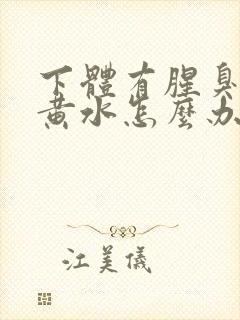 下體有腥臭
黃水怎麼办
江美儀